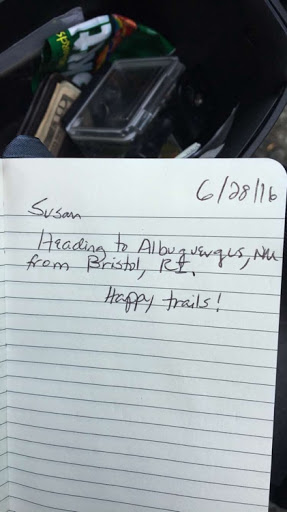 6/28/16
Susan
Heading to Albuquerque, NM
from Bristol, RI.
Happy trails!